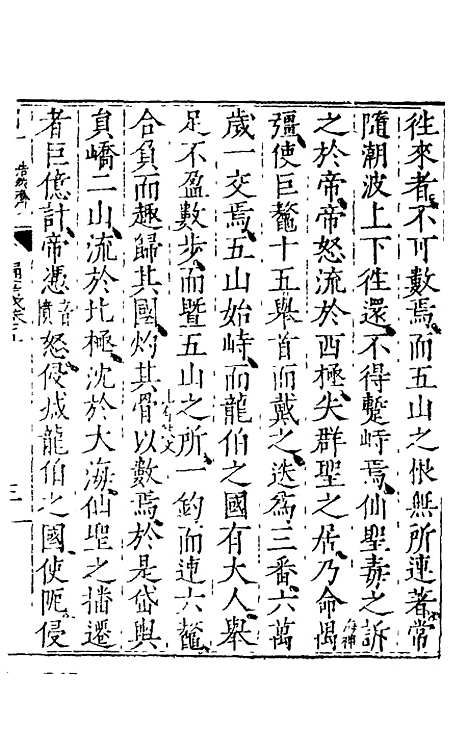 徃來者不可數焉而五山之根無所連著常
隨潮波上下徃還不得蹔峙焉仙聖毒之訴
之於帝帝怒流於西極失群聖之居乃命禺
彊使巨鼇十五舉首而戴之迭爲三番六萬
歲一交焉五山始峙而龍伯之國有大人舉
足不盈數步而曁五山之所一釣而連六鼇
合負而趣歸其國灼其骨以數焉於是岱輿
貟嶠二山流於北極沈於大海仙聖之播遷
者巨億計帝憑音憤怒侵减龍伯之國使阨侵